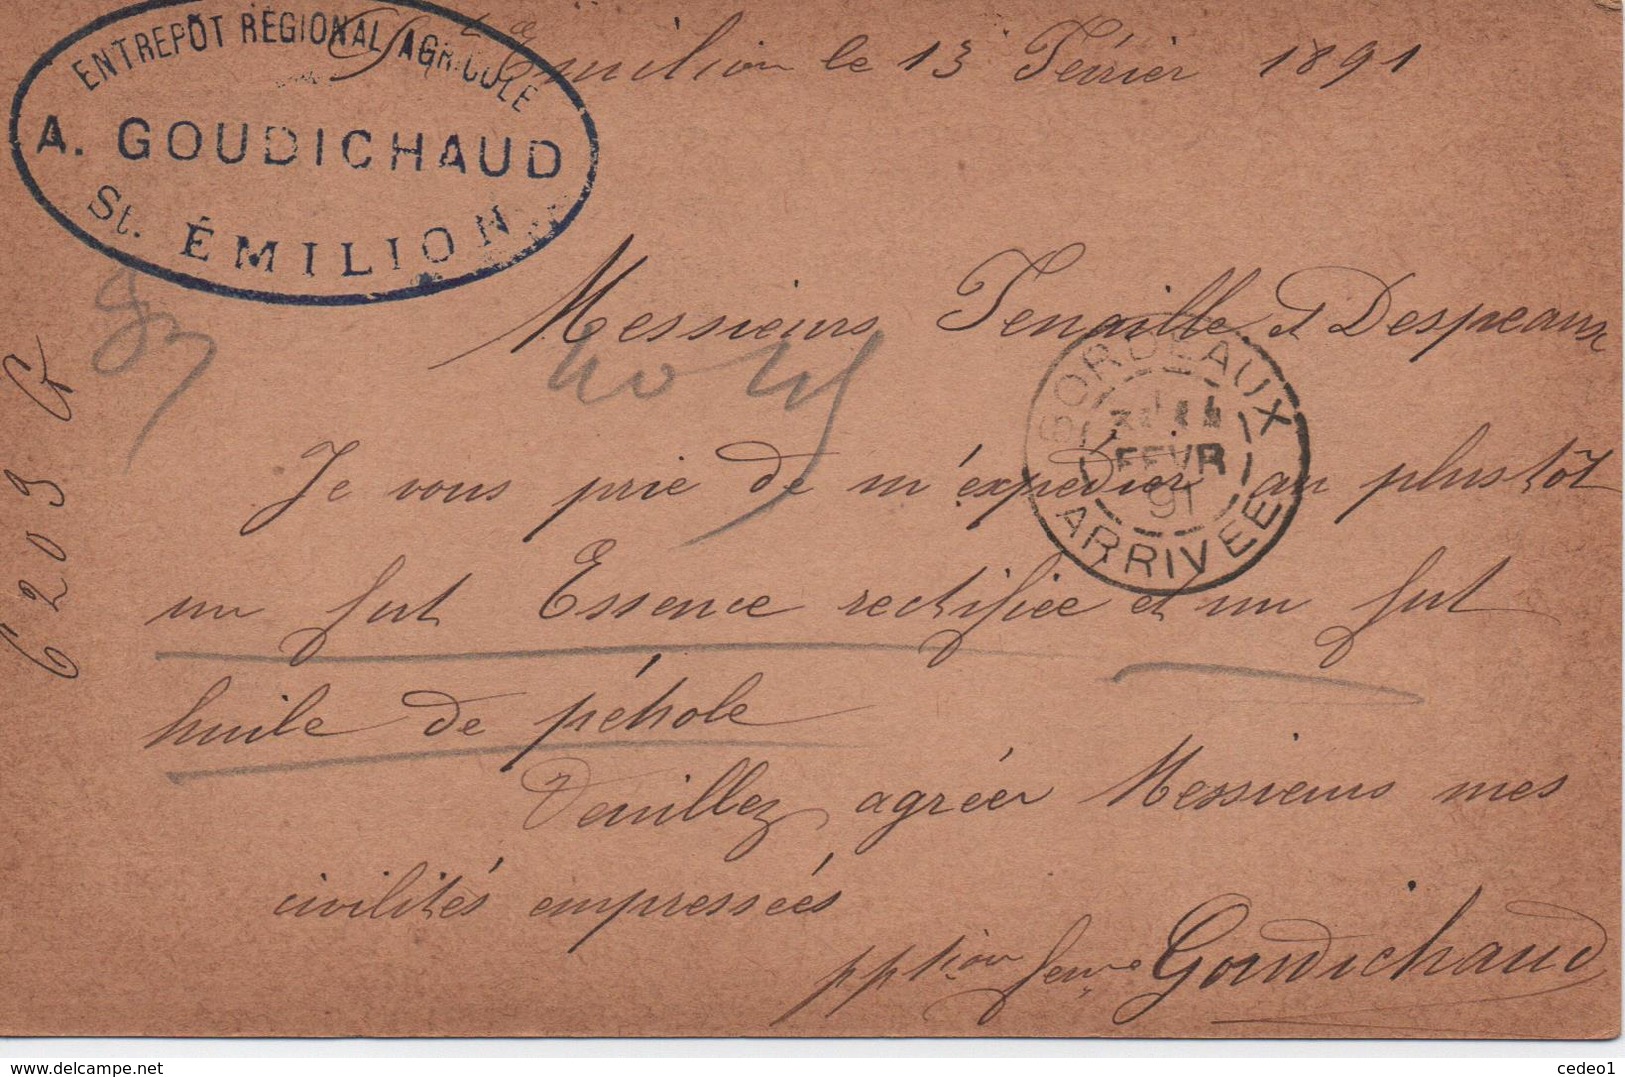 ENTREPÔT RÉGIONAL AGRICOLE
A. GOUDICHAUD
St. ÉMILION
St Emilion le 13 Février 1891
Messieurs Tenaille et Despeaux
BORDEAUX
FEVR
91
ARRIVEE
Je vous prie de m'éxpédier au plustôt
un fut Essence rectifiée et un fut
huile de pétrole
Veuillez agréer Messieurs mes
civilités empressées
pption feme Goudichaud
6203 G
delcampe.net
cedeo1